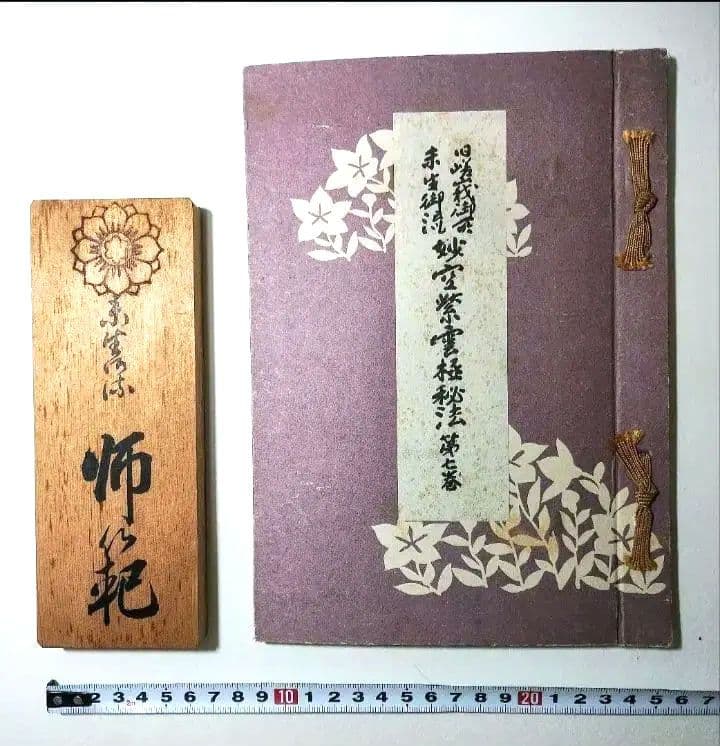 未生御流
师範
旧嵯峨御所
未生御流
妙空紫雲極秘法 第七巻
2 3 4 5 6 7 8 9 10 1 2 3 4 5 6 7 8 9 20 1 2 3 4 5 6 7
2m